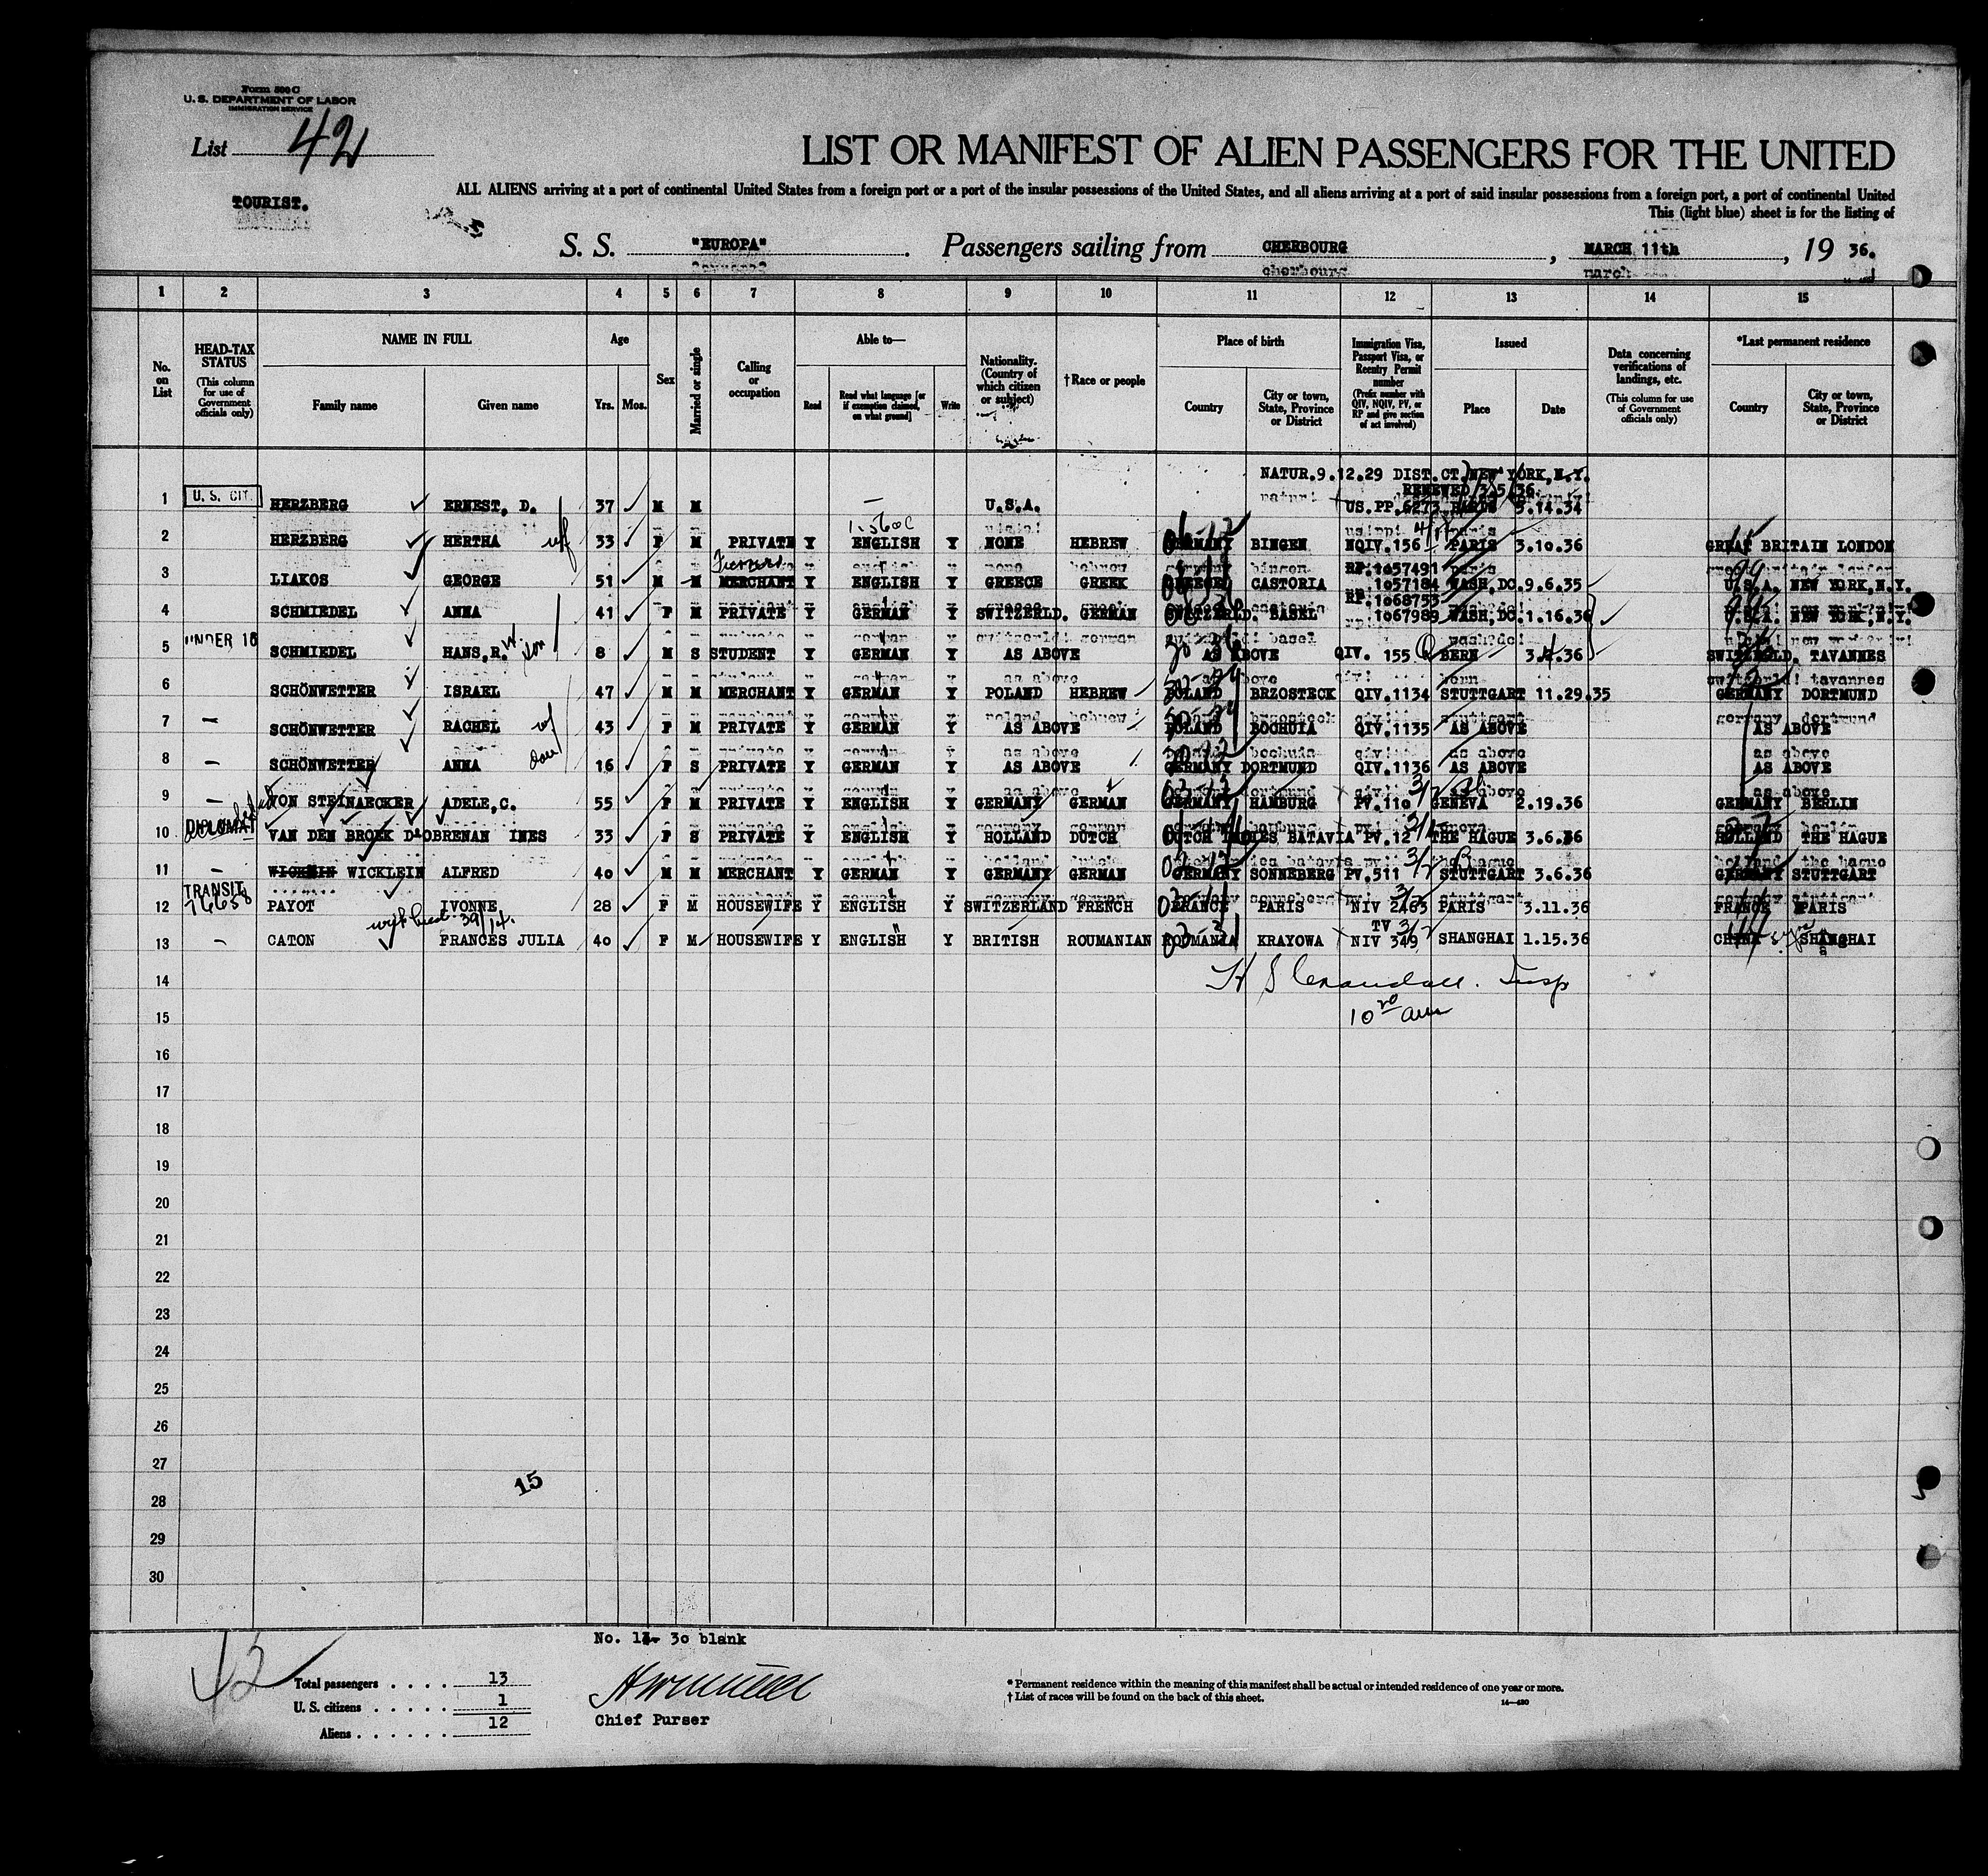 Form 500 C
U. S. DEPARTMENT OF LABOR
IMMIGRATION SERVICE
List 42
LIST OR MANIFEST OF ALIEN PASSENGERS FOR THE UNITED
ALL ALIENS arriving at a port of continental United States from a foreign port or a port of the insular possessions of the United States, and all aliens arriving at a port of said insular possessions from a foreign port, a port of continental United
TOURIST.
This (light blue) sheet is for the listing of
S. S. "EUROPA". Passengers sailing from CHERBOURG, MARCH 11th, 19 36.
1 2 3 4 5 6 7 8 9 10 11 12 13 14 15
No. on List
HEAD-TAX STATUS (This column for use of Government officials only)
NAME IN FULL
Family name
Given name
Age
Yrs. Mos.
Sex
Married or single
Calling or occupation
Able to—
Read
Read what language [or if exemption claimed, on what ground]
Write
Nationality. (Country of which citizen or subject)
†Race or people
Place of birth
Country
City or town, State, Province or District
Immigration Visa, Passport Visa, or Reentry Permit number (Prefix number with QIV, NQIV, PV, or RP and give section of act involved)
Issued
Place
Date
Data concerning verifications of landings, etc. (This column for use of Government officials only)
*Last permanent residence
Country
City or town, State, Province or District
NATUR.9.12.29 DIST.CT.NEW YORK,N.Y.
RENEWED 3.5.36
1 U. S. CIT. HERZBERG ERNEST, D. 37 M M U.S.A. US.PP.6273 PARIS 3.14.34
2 HERZBERG HERTHA wf 33 F M PRIVATE Y ENGLISH Y NONE HEBREW GERMANY BINGEN NQIV.156 PARIS 3.10.36 GREAT BRITAIN LONDON
RP.1057491
3 LIAKOS GEORGE 51 M M MERCHANT Y ENGLISH Y GREECE GREEK GREECE CASTORIA 1057184 WASH,DC.9.6.35 U.S.A. NEW YORK,N.Y.
RP.1068753
4 SCHMIEDEL ANNA 41 F M PRIVATE Y GERMAN Y SWITZERLD. GERMAN SWITZERLD. BASEL 1067989 WASH,DC.1.16.36 U.S.A. NEW YORK,N.Y.
5 UNDER 16 SCHMIEDEL HANS,R.W. son 8 M S STUDENT Y GERMAN Y AS ABOVE AS ABOVE QIV. 155 BERN 3.4.36 SWITZERLD. TAVANNES
6 SCHÖNWETTER ISRAEL 47 M M MERCHANT Y GERMAN Y POLAND HEBREW POLAND BRZOSTECK QIV.1134 STUTTGART 11.29.35 GERMANY DORTMUND
7 – SCHÖNWETTER RACHEL wf 43 F M PRIVATE Y GERMAN Y AS ABOVE POLAND BOCHUIA QIV.1135 AS ABOVE AS ABOVE
8 – SCHÖNWETTER ANNA dau 16 F S PRIVATE Y GERMAN Y AS ABOVE GERMANY DORTMUND QIV.1136 AS ABOVE AS ABOVE
9 – VON STEINAECKER ADELE,C. 55 F M PRIVATE Y ENGLISH Y GERMANY GERMAN GERMANY HAMBURG PV.110 GENEVA 2.19.36 GERMANY BERLIN
10 DIPLOMAT VAN DEN BROEK D'OBRENAN INES 33 F S PRIVATE Y ENGLISH Y HOLLAND DUTCH DUTCH INDIES BATAVIA PV.12 THE HAGUE 3.6.36 HOLLAND THE HAGUE
11 – WICKLEIN ALFRED 40 M M MERCHANT Y GERMAN Y GERMANY GERMAN GERMANY SONNEBERG PV.511 STUTTGART 3.6.36 GERMANY STUTTGART
12 TRANSIT 76658 PAYOT IVONNE 28 F M HOUSEWIFE Y ENGLISH Y SWITZERLAND FRENCH FRANCE PARIS NIV 2163 PARIS 3.11.36 FRANCE PARIS
39/14.
TV
13 – CATON FRANCES JULIA 40 F M HOUSEWIFE Y ENGLISH Y BRITISH ROUMANIAN ROUMANIA KRAYOWA NIV 349 SHANGHAI 1.15.36 CHINA SHANGHAI
14
15
16
17
18
19
20
21
22
23
24
25
26
27
28
29
30
15
No. 14- 30 blank
42
Total passengers . . . . 13
U. S. citizens . . . . . 1
Aliens . . . . . . 12
Chief Purser
* Permanent residence within the meaning of this manifest shall be actual or intended residence of one year or more.
† List of races will be found on the back of this sheet.
14—420